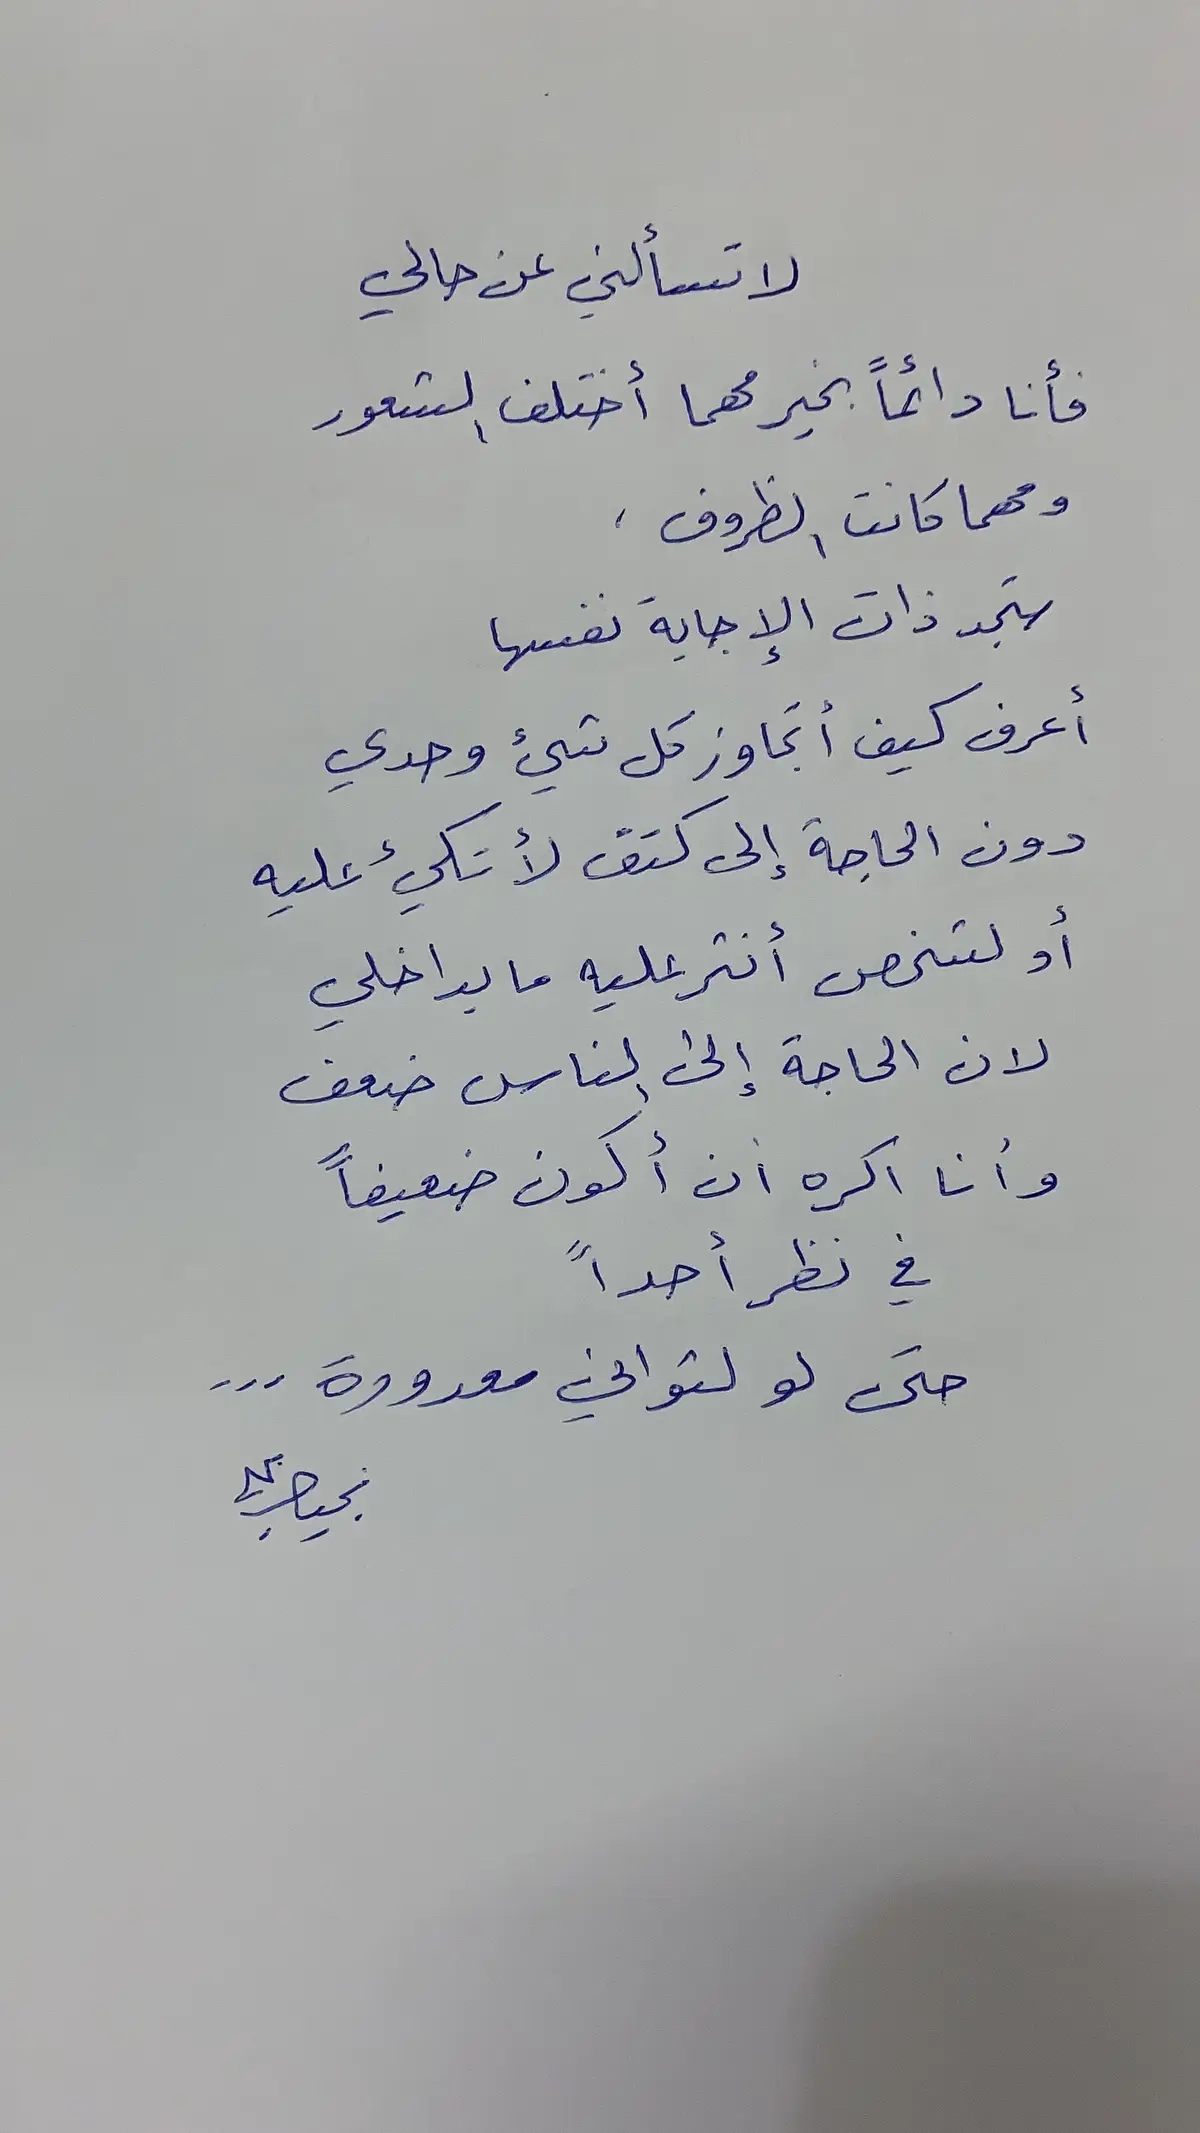 لا تسألني عن حالي
فأنا دائماً بخير مهما أختلف الشعور
ومهما كانت الظروف ،
ستجد ذات الإجابة نفسها
أعرف كيف أتجاوز كل شيئ وحدي
دون الحاجة إلى كتف لأتكئ عليه
أو لشخص أنثر عليه ما بداخلي
لان الحاجة إلى الناس ضعف
وأنا اكره ان أكون ضعيفاً
في نظر أحداً
حتى لو لثواني معدوده ...